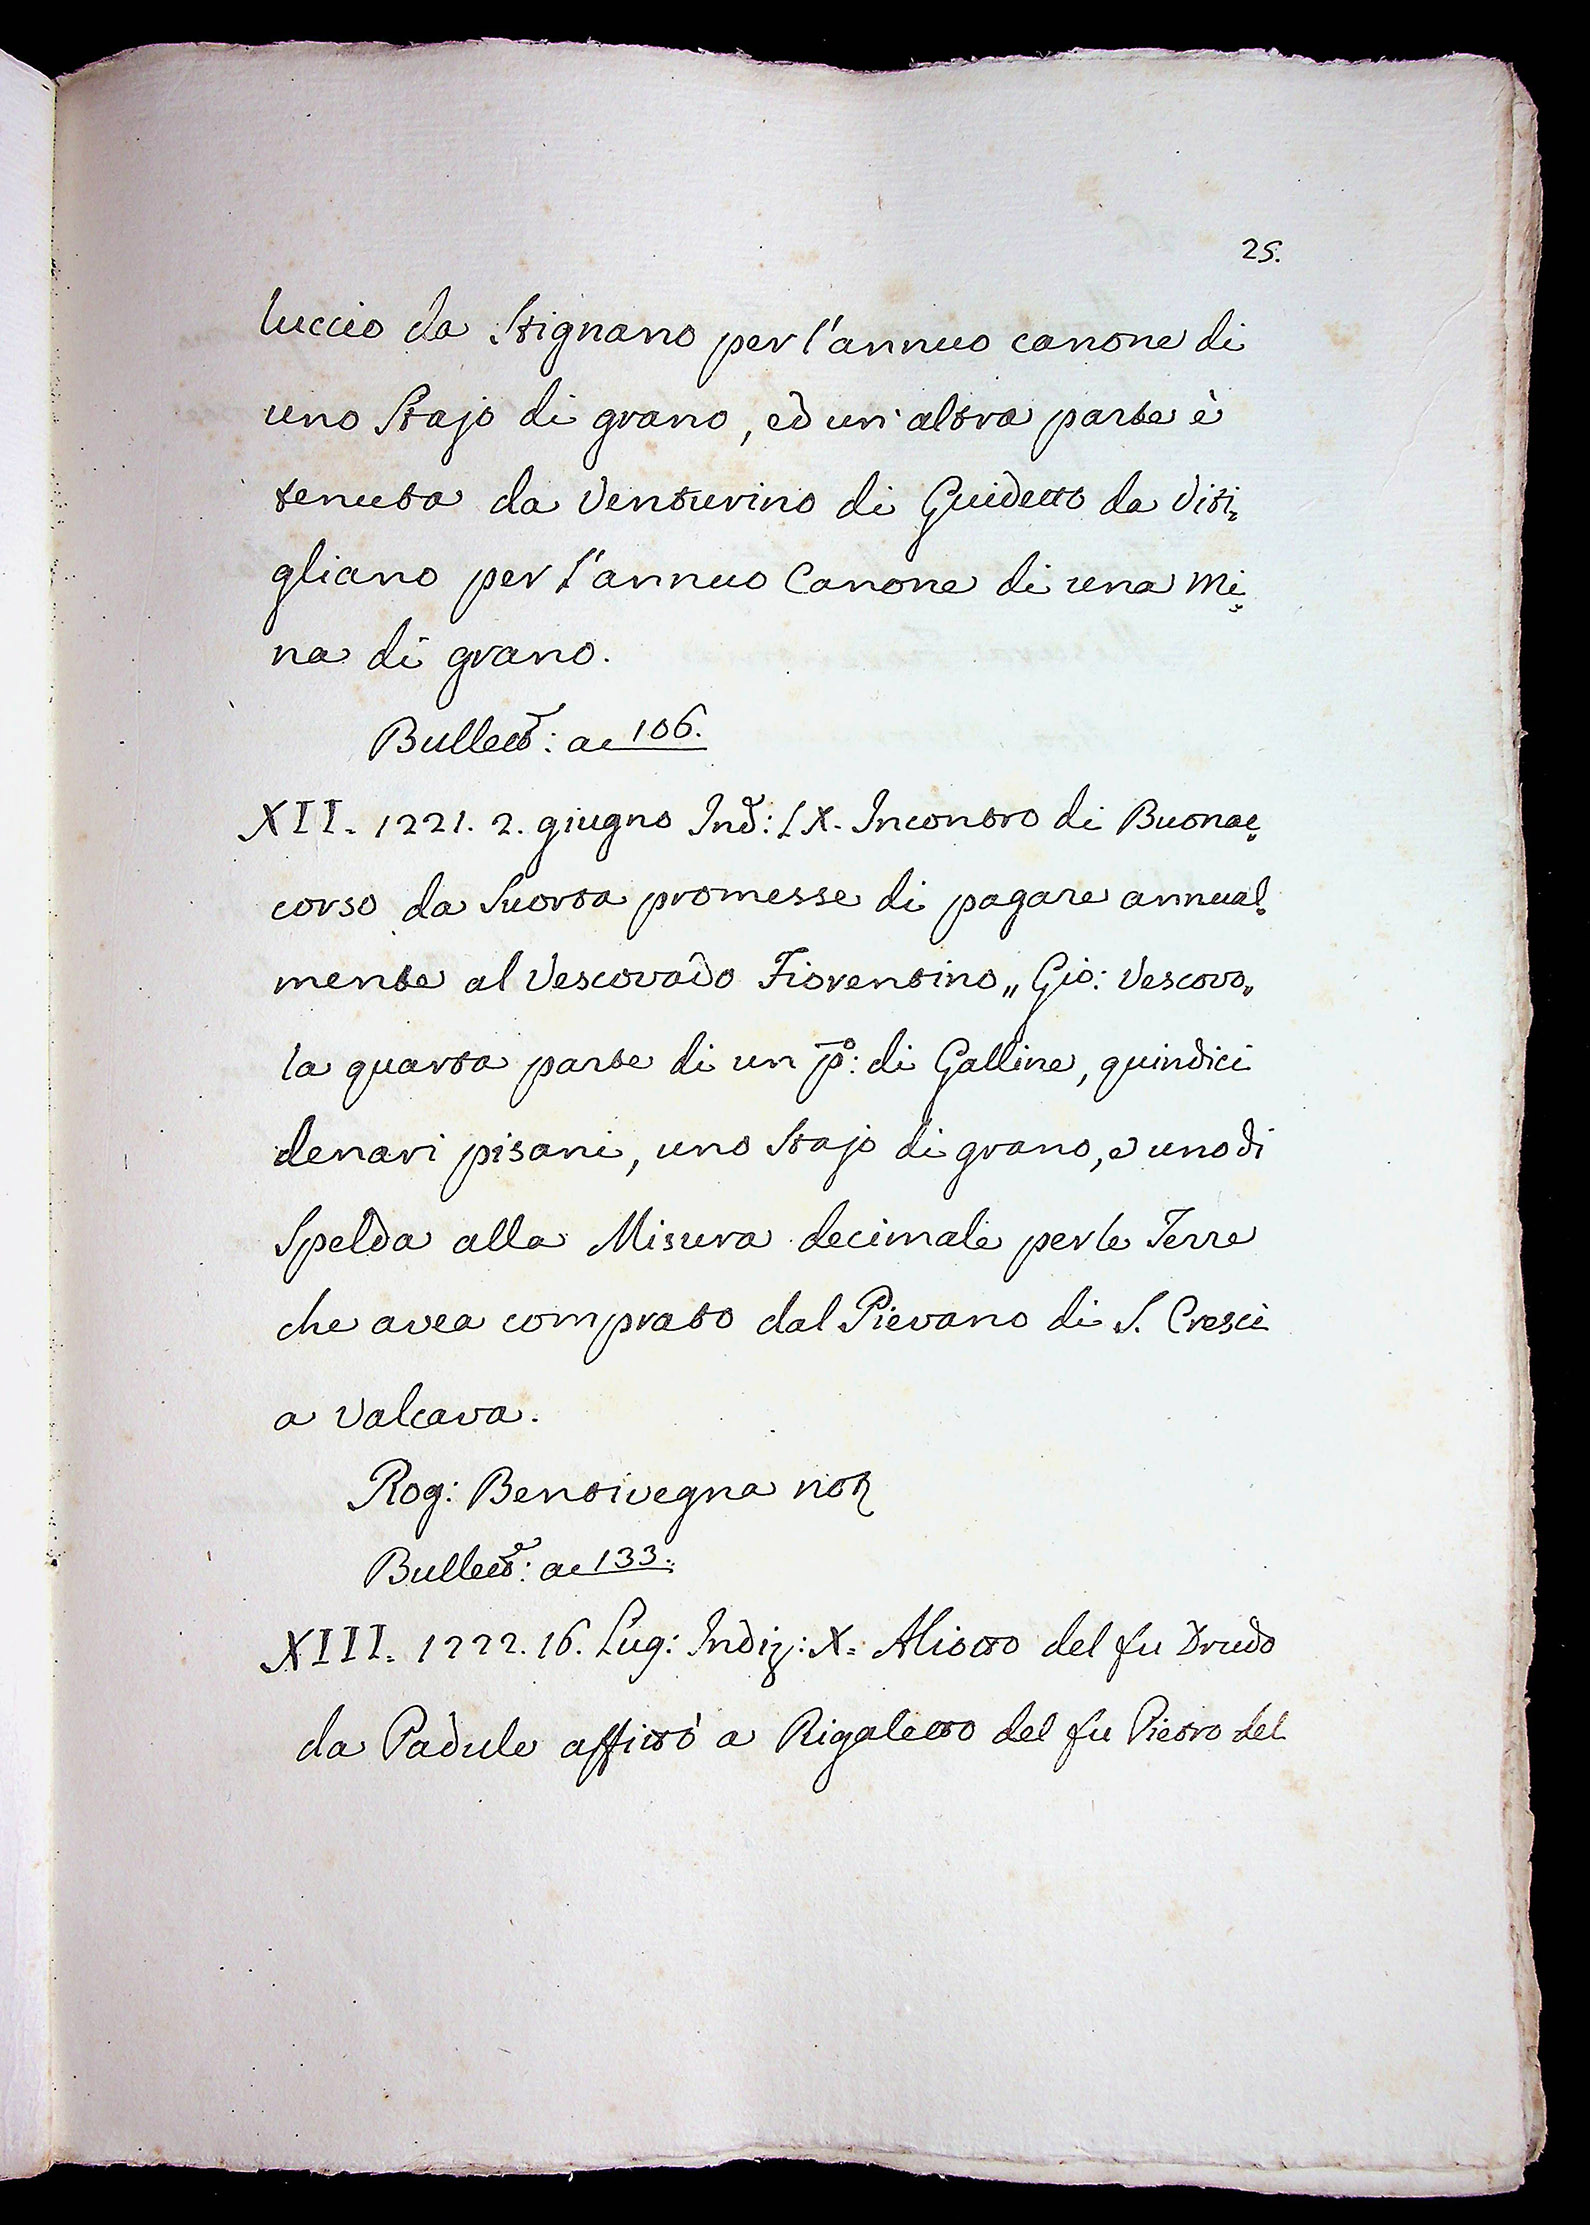 25.
luccio da Stignano per l'annuo canone di
uno Stajo di grano, ed un'altra parte è
tenuta da Venturino di Guidetto da Viti=
gliano per l'annuo Canone di una Mi=
na di grano.
Bullett: a 106.
XII. 1221. 2. giugno Ind: IX. Incontro di Buonac=
corso da Suorta promesse di pagare annual=
mente al Vescovado Fiorentino „ Gio: Vescovo „
la quarta parte di un po: di Galline, quindici
denari pisani, uno Stajo di grano, e uno di
Spelda alla Misura decimale per le Terre
che avea comprato dal Pievano di S. Cresci
a Valcava.
Rog: Bentivegna not
Bullett: a 133.
XIII. 1222. 16. Lug: Indiz: X. Aliotto del fu Drudo
da Padule affittò a Rigaletto del fu Pietro del